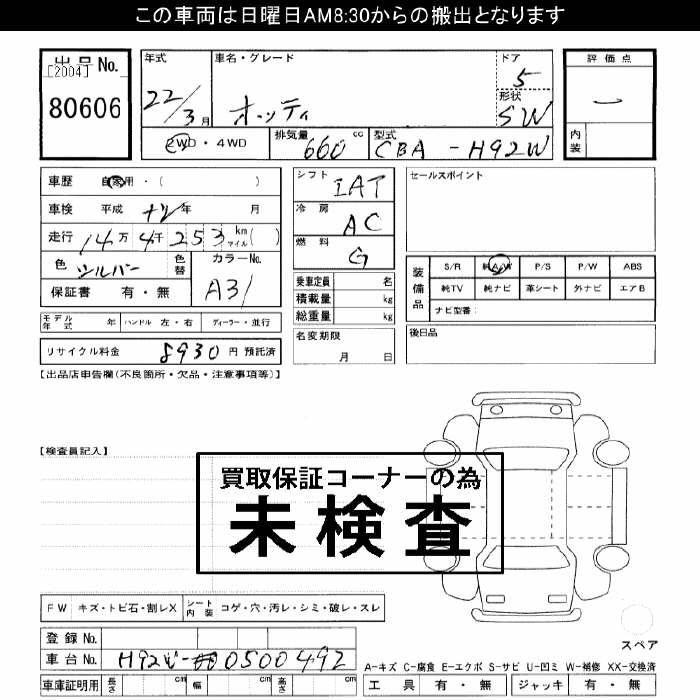 この車両は日曜日AM8:30からの搬出となります
出品No.
[2004]
80606
年式
22/3月
車名・グレード
オッティ
ドア
5
形状
SW
評価点
内装
2WD・4WD
排気量
660 cc
型式
CBA-H92W
車歴 自家用・( )
車検 平成 年 月
走行 14万4千253 km マイル( )
色 シルバー
色替
カラーNo.
A31
保証書 有・無
シフト
IAT
冷房
AC
燃料
G
乗車定員 名
積載量 kg
総重量 kg
名変期限
月 日
セールスポイント
装備品
S/R 純A/W P/S P/W ABS
純TV 純ナビ 革シート 外ナビ エアB
ナビ型番:
後日品
モデル年式 年 ハンドル 左・右 ディーラー・並行
リサイクル料金 8930 円 預託済
【出品店申告欄(不良箇所・欠品・注意事項等)】
【検査員記入】
買取保証コーナーの為
未検査
FW キズ・トビ石・割レX シート内装 コゲ・穴・汚レ・シミ・破レ・スレ
登録No.
車台No. H92W-0500492
車庫証明用 長さ 幅 高さ
スペア
A-キズ C-腐食 E-エクボ S-サビ U-凹ミ W-補修 XX-交換済
工具 有・無 ジャッキ 有・無